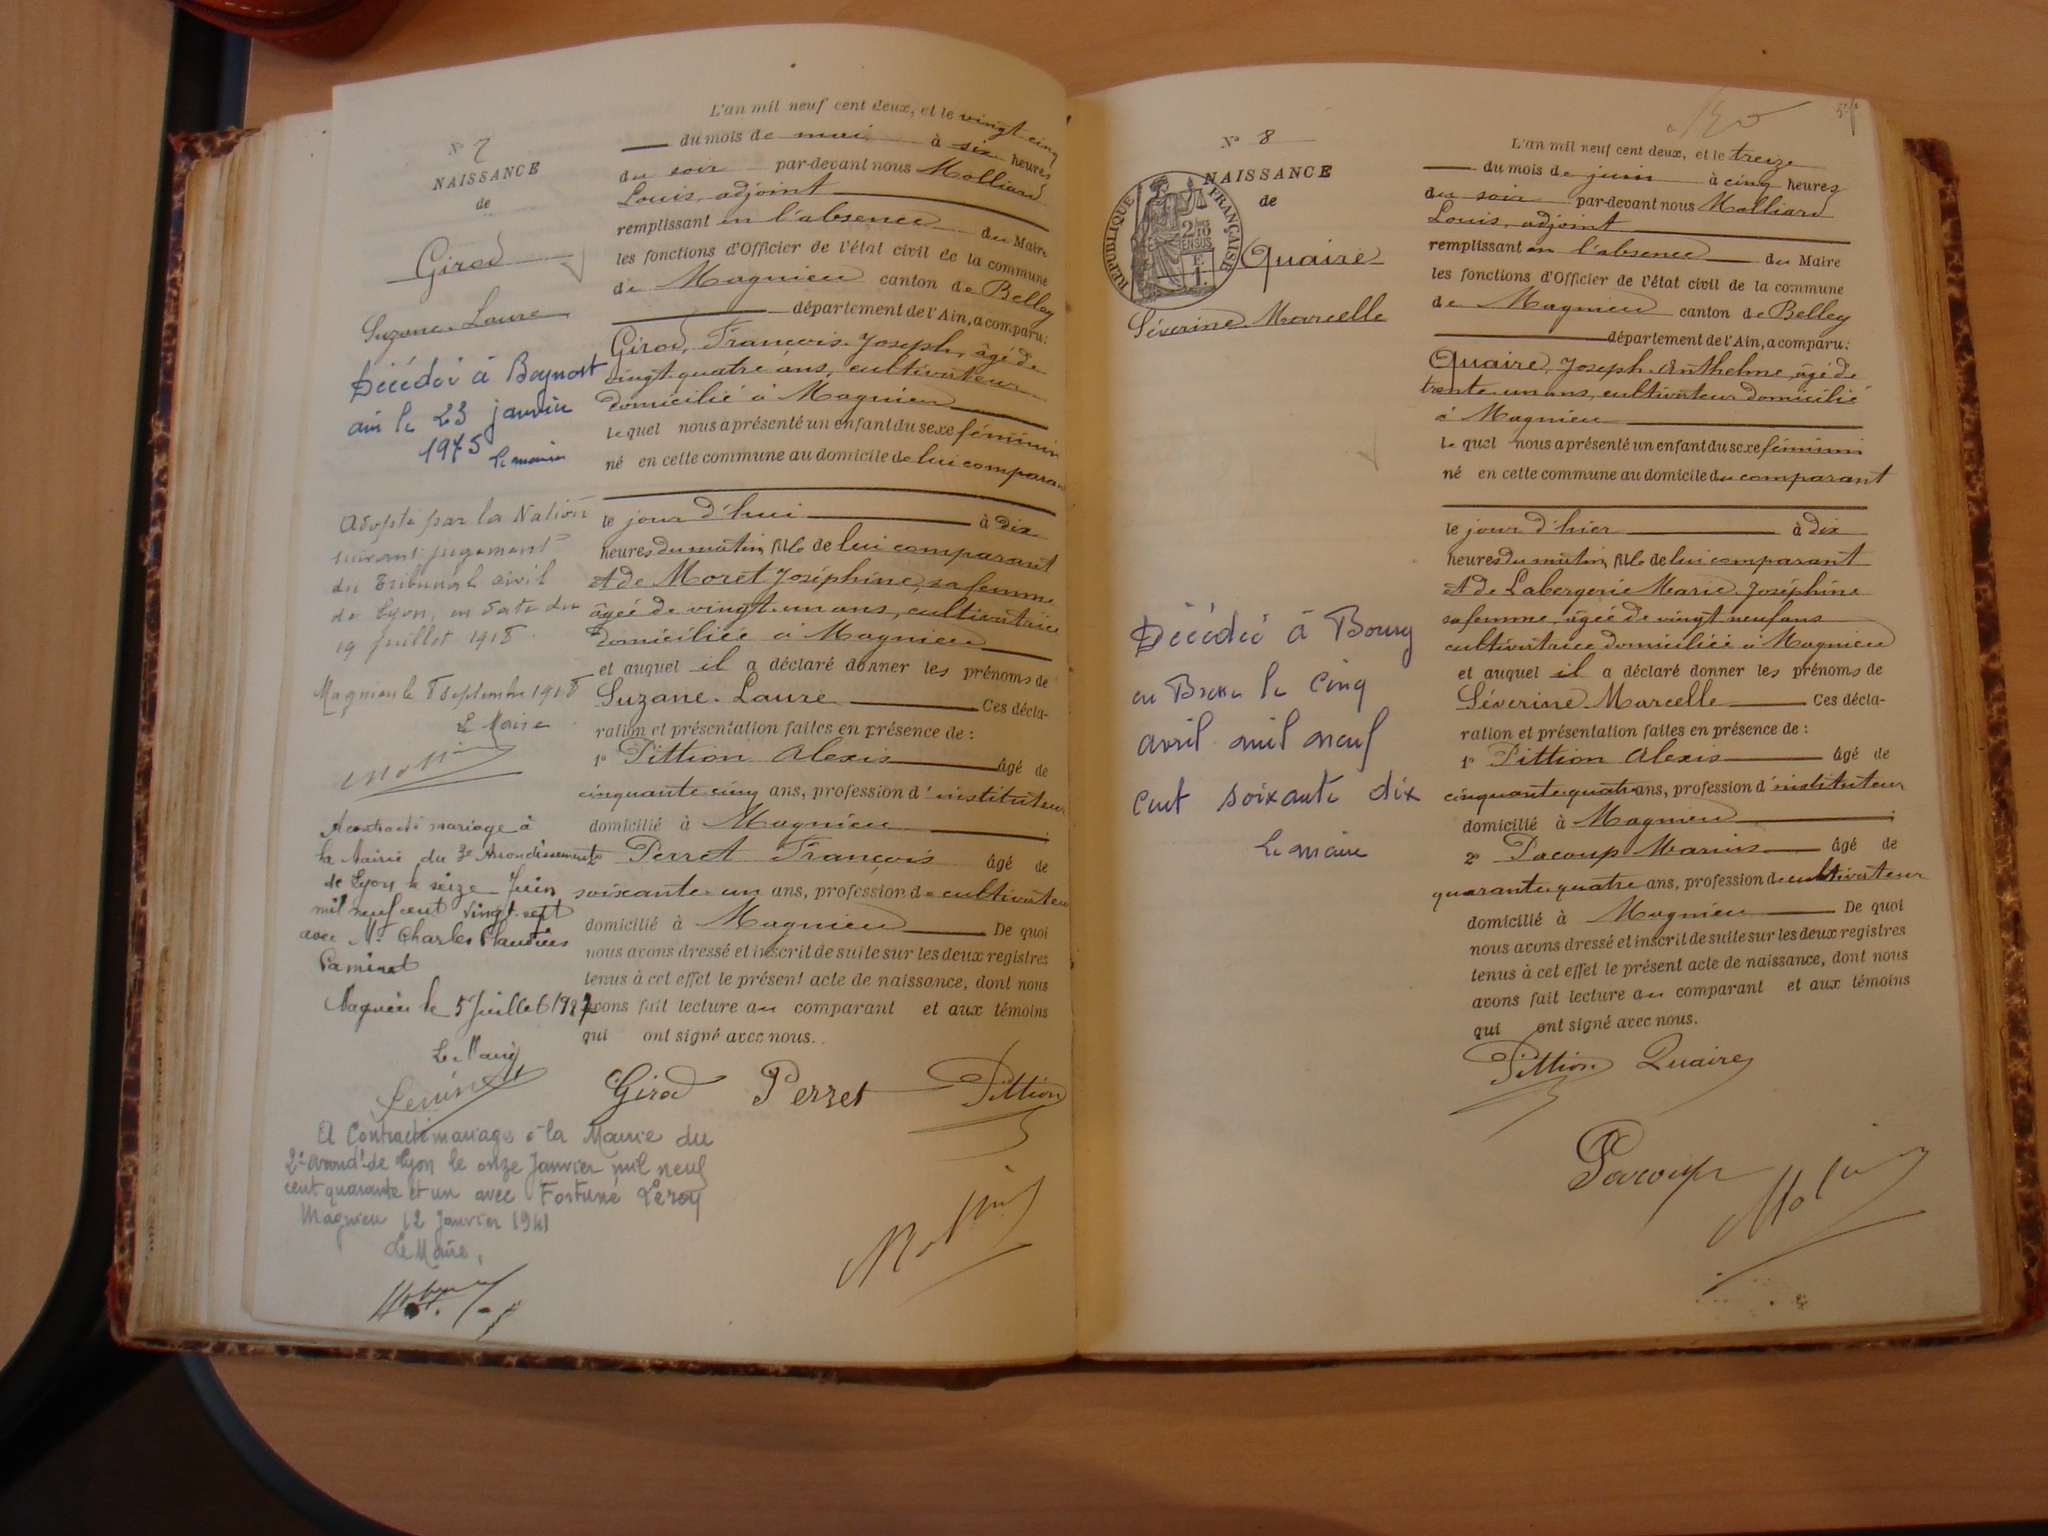 N° 7
NAISSANCE
de
Girod
Suzane-Laure
Décédée à Beynost
ain le 23 janvier
1975 le maire
Adopté par la Nation
suivant jugement
du Tribunal civil
de Lyon, en date du
19 juillet 1918
Magnieu le 8 septembre 1918
Le Maire
A contracté mariage à
la Mairie du 3e Arrondissement
de Lyon le seize Juin
mil neuf cent vingt sept
avec Mr Charles Claudius
Paminet
Magnieu le 5 Juillet 1927
Le Maire
A Contracté mariage à la Mairie du
2e arrondt de Lyon le onze Janvier mil neuf
cent quarante et un avec Fortuné Leroy
Magnieu 12 Janvier 1941
Le Maire,
L'an mil neuf cent deux, et le vingt cinq
du mois de mai à six heures
du soir par-devant nous Molliard
Louis, adjoint
remplissant en l'absence du Maire
les fonctions d'Officier de l'état civil de la commune
de Magnieu canton de Belley
département de l'Ain, a comparu:
Girod, François-Joseph, âgé de
vingt-quatre ans, cultivateur
domicilié à Magnieu
lequel nous a présenté un enfant du sexe féminin
né en cette commune au domicile de lui comparant
le jour d'hui à dix
heures du matin, fille de lui comparant
et de Moret Joséphine, sa femme
âgée de vingt-un ans, cultivatrice
domiciliée à Magnieu
et auquel il a déclaré donner les prénoms de
Suzane-Laure Ces décla-
ration et présentation faites en présence de :
1° Pittion Alexis âgé de
cinquante-cinq ans, profession d'instituteur
domicilié à Magnieu
2° Perret François âgé de
soixante-un ans, profession de cultivateur
domicilié à Magnieu De quoi
nous avons dressé et inscrit de suite sur les deux registres
tenus à cet effet le présent acte de naissance, dont nous
avons fait lecture au comparant et aux témoins
qui ont signé avec nous.
Girod Perret Pittion
N° 8
NAISSANCE
de
REPUBLIQUE FRANÇAISE
Quaire
Séverine-Marcelle
Décédée à Bourg
en Bresse le cinq
avril mil neuf
cent soixante dix
Le maire
L'an mil neuf cent deux, et le treize
du mois de juin à cinq heures
du soir par-devant nous Molliard
Louis, adjoint
remplissant en l'absence du Maire
les fonctions d'Officier de l'état civil de la commune
de Magnieu canton de Belley
département de l'Ain, a comparu:
Quaire, Joseph-Anthelme, âgé de
trente-un ans, cultivateur domicilié
à Magnieu
lequel nous a présenté un enfant du sexe féminin
né en cette commune au domicile du comparant
le jour d'hier à dix
heures du matin, fille de lui comparant
et de Labergerie Marie-Joséphine
sa femme, âgée de vingt neuf ans
cultivatrice domiciliée à Magnieu
et auquel il a déclaré donner les prénoms de
Séverine-Marcelle Ces décla-
ration et présentation faites en présence de :
1° Pittion Alexis âgé de
cinquante-quatre ans, profession d'instituteur
domicilié à Magnieu
2° Pacoup Marius âgé de
quarante-quatre ans, profession de cultivateur
domicilié à Magnieu De quoi
nous avons dressé et inscrit de suite sur les deux registres
tenus à cet effet le présent acte de naissance, dont nous
avons fait lecture au comparant et aux témoins
qui ont signé avec nous.
Pittion Quaire
Pacoup